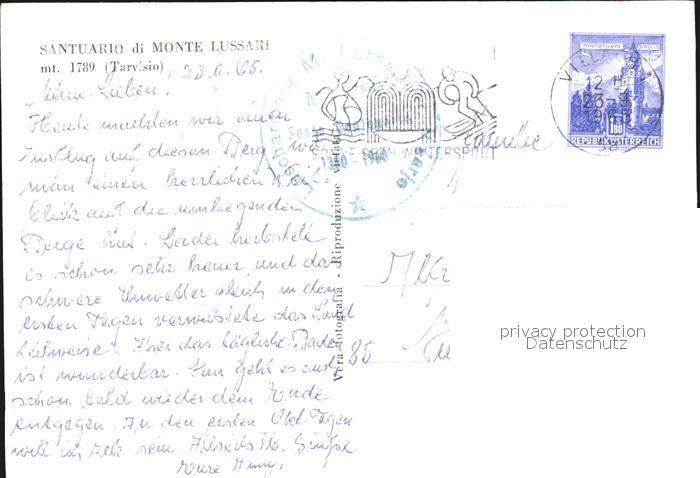 SANTUARIO di MONTE LUSSARI
mt. 1789 (Tarvisio) , 23.9.65.
Meine Lieben!
Heute machten wir einen
Ausflug auf diesen Berg wo
man einen herrlichen
Blick auf die umliegenden
Berge hat. Leider herbstelt
es schon sehr heuer und das
schwere Unwetter gleich in den
ersten Tagen verwüstete das Land
teilweise. Aber das tägliche Baden
ist wunderbar. Nun geht es auch
schon bald wieder dem Ende
entgegen. In den ersten Okt. Tagen
will ich zck. sein. Allseits lb. Grüße
Eure
Vera fotografia - Riproduzione vietata
Familie
85
VILLACH
12
23
1965
WINTERSPORT
MÜNZTURM
1.80
REPUBLIK ÖSTERREICH
privacy protection
Datenschutz